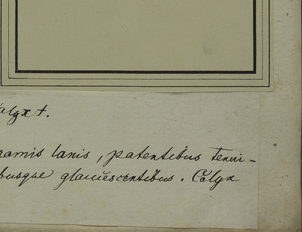 Calyx †.
ramis laxis, patentibus tenui-
busque glaucescentibus. Calyx